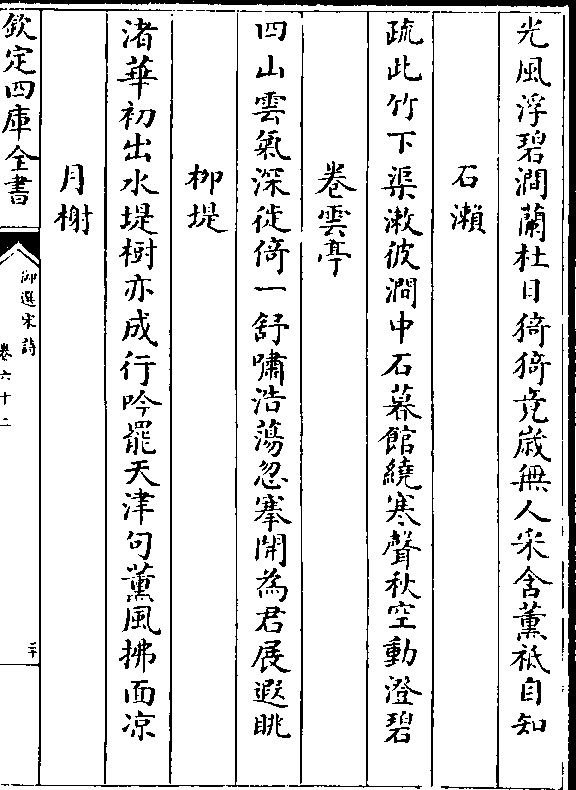 光風浮碧澗蘭杜日猗猗竟歳無人采含薫祗自知
石瀨
疏此竹下渠漱彼澗中石暮館繞寒聲秋空動澄碧
卷雲亭
四山雲氣深徙倚一舒嘯浩蕩忽搴開為君展遐眺
柳堤
渚華初出水堤樹亦成行吟罷天津句薫風拂面凉
月榭
欽定四庫全書
御選宋詩
卷六十二
二十